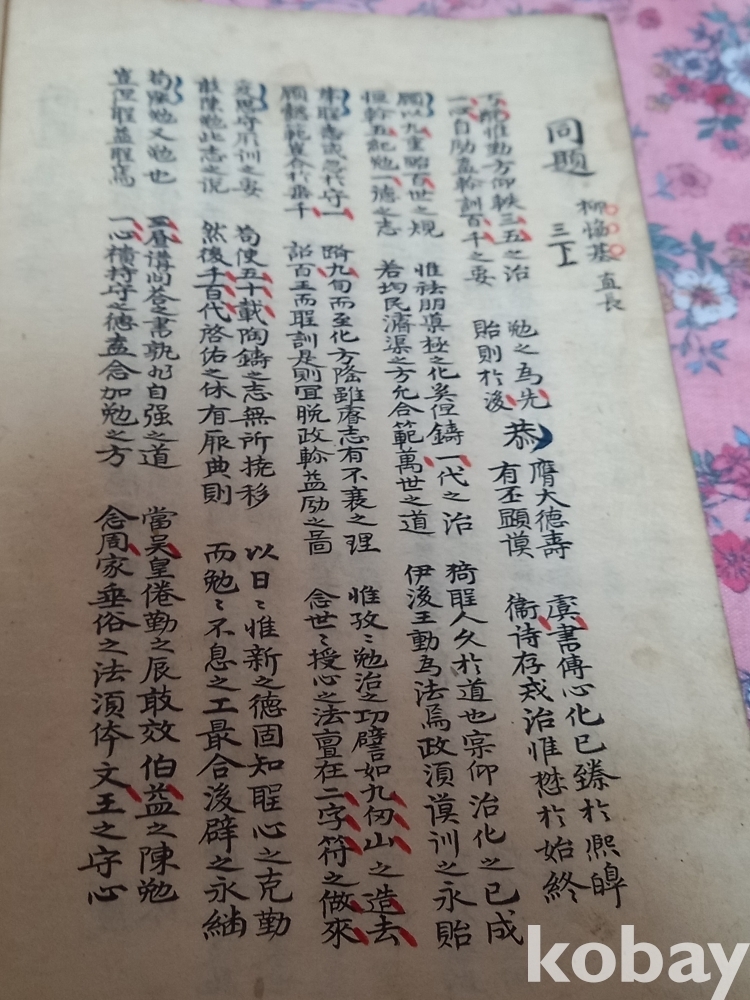 同題
柳基 直長
三下
惟勤方仰軼三五之治
一心自勖盍軫訓百千之要
勉之為先
貽則於後
恭
膺大德壽
有丕顯謨
虞書傳心化已臻於熙皥
衛詩存戒治惟懋於始終
顧以九重貽百世之規
恒軫五紀勉一德之志
惟祛朋奠極之化奚但鑄一代之治
若均民濬渠之方允合範萬世之道
猗聖人久於道也宗仰治化之已成
伊後王動為法焉政須謨訓之永貽
聖或忽於守一
願懿範冀合於垂千
躋九旬而至化方隆雖睿志有不衰之理
詔百王而聖訓是則宜晩政軫益励之啚
惟孜〻勉治之功譬如九仞山之造去
念世〻授心之法亶在二字符之做來
爰思守用訓之要
敢陳勉此志之說
苟使五十載陶鑄之志無所撓移
然後千百代啓佑之休有厥典則
以日〻惟新之德固知聖心之克勤
而勉〻不息之工最合後辟之永緬
苟陳勉又勉也
豈但聖益聖焉
三晝講問荅之書孰如自强之道
一心橫持守之德盍念加勉之方
當吴皇倦勤之辰敢效伯益之陳勉
念周家垂俗之法須体文王之守心
kobay